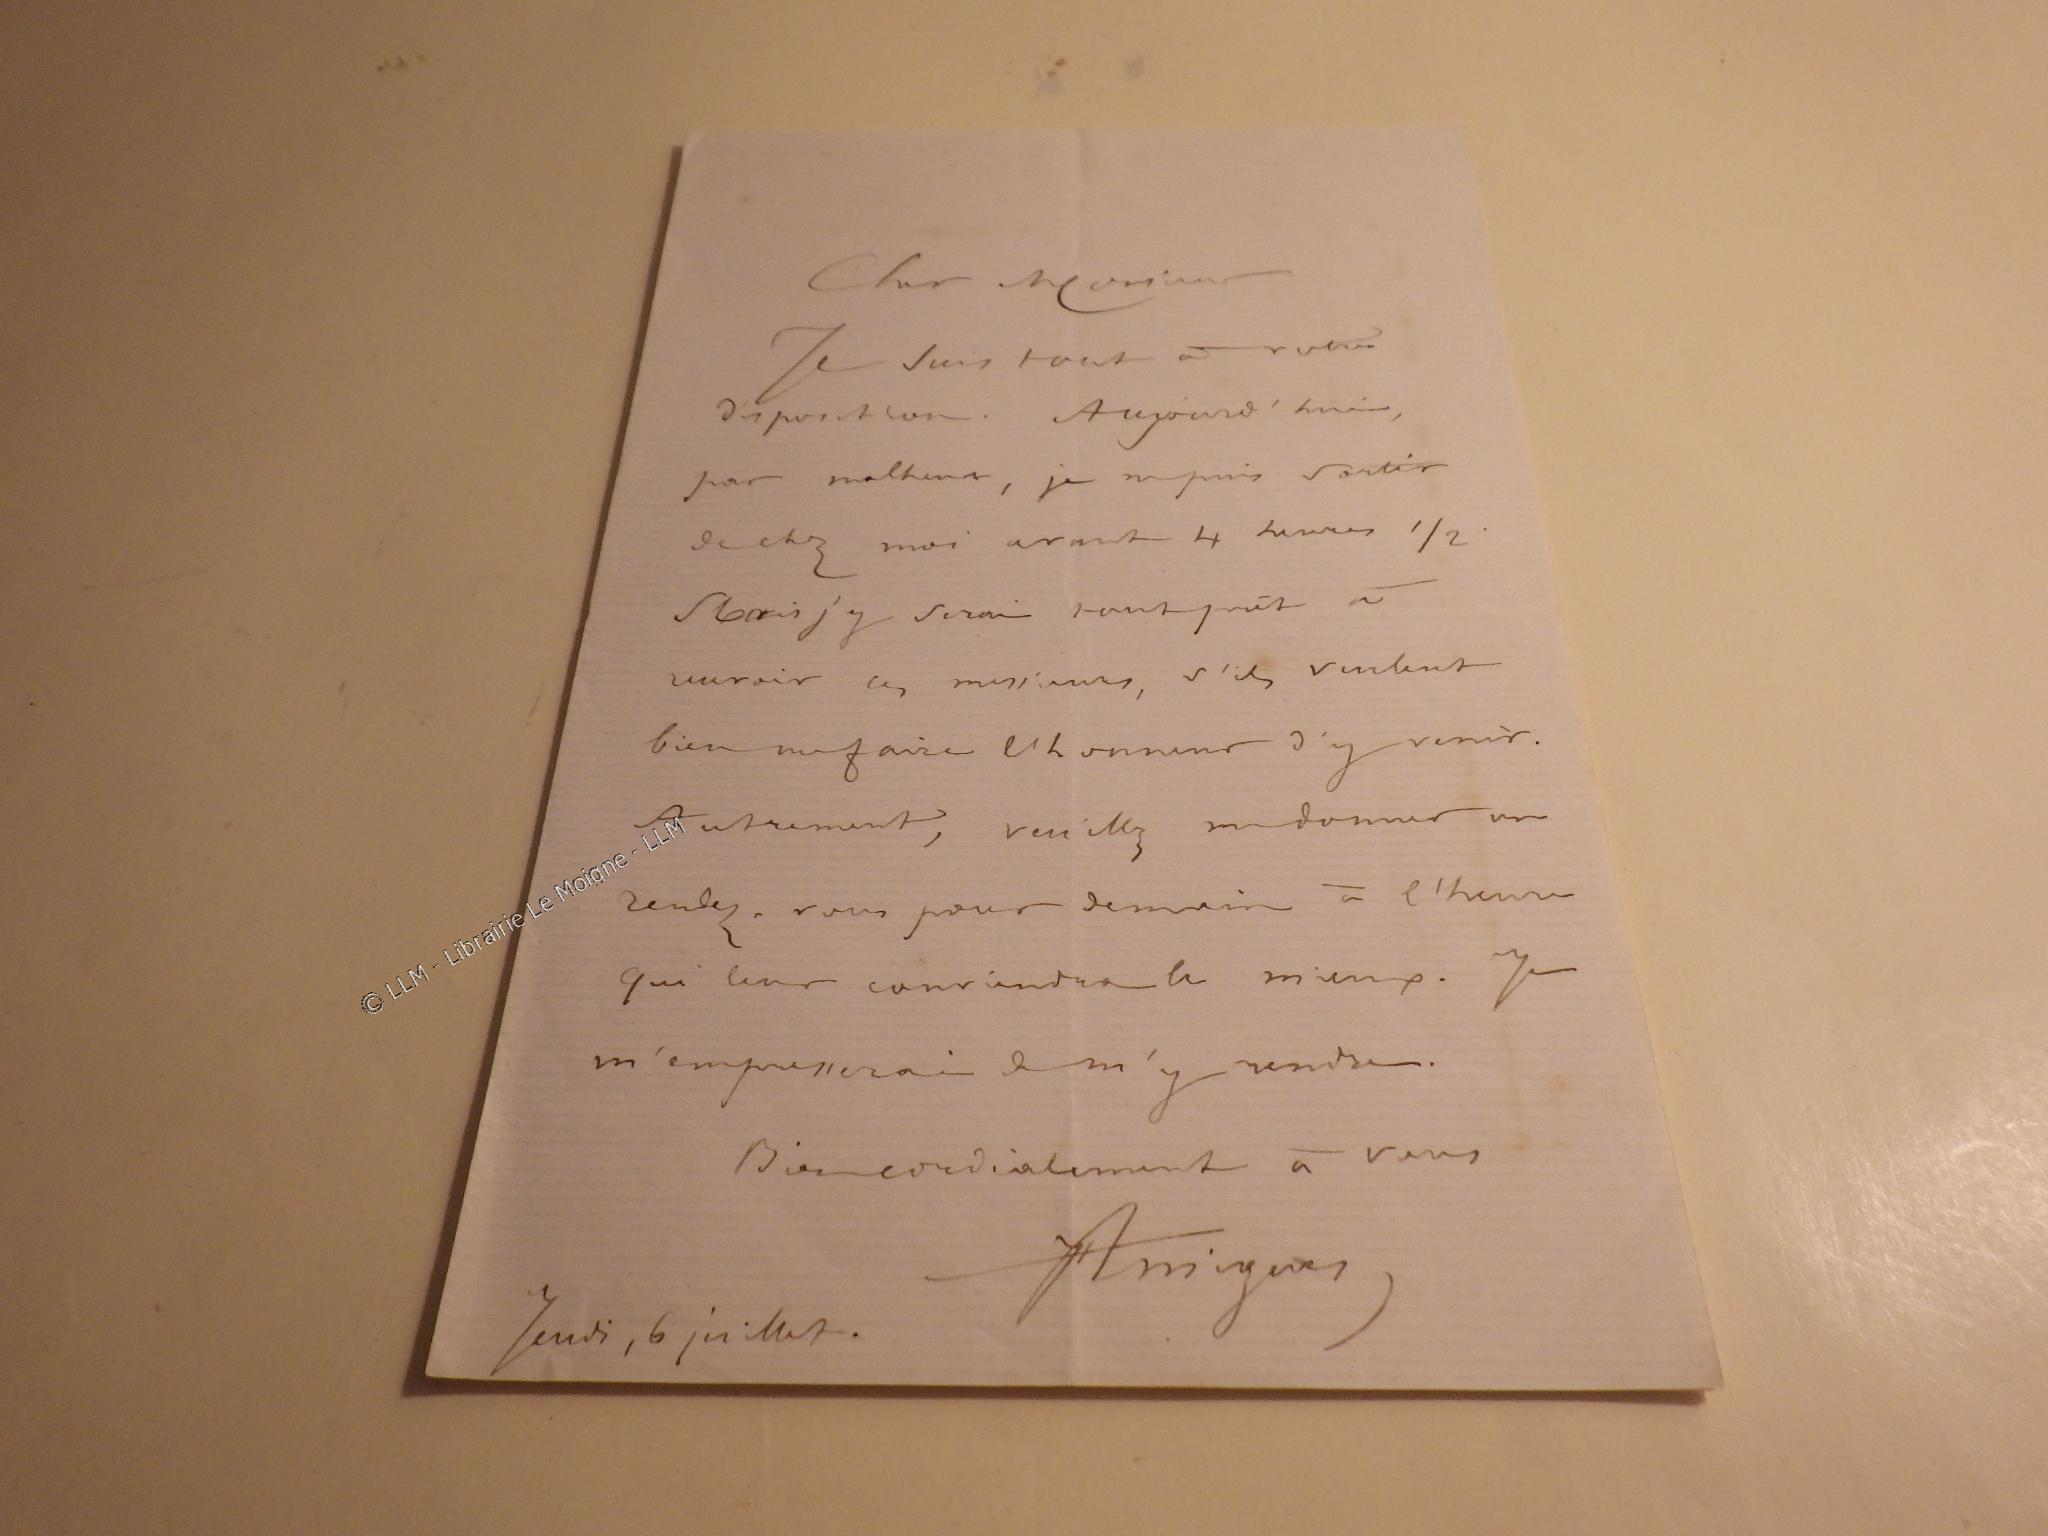 Cher Monsieur
Je suis tout à votre
disposition. Aujourd'hui,
par malheur, je ne puis sortir
de chez moi avant 4 heures 1/2.
Mais j'y serai tout prêt à
recevoir ces messieurs, s'ils veulent
bien me faire l'honneur d'y venir.
Autrement, veuillez me donner un
rendez-vous pour demain à l'heure
qui leur conviendra le mieux. Je
m'empresserai de m'y rendre.
Bien cordialement à vous
JAmigues
Jeudi, 6 juillet.
© LLM - Librairie Le Moigne - LLM